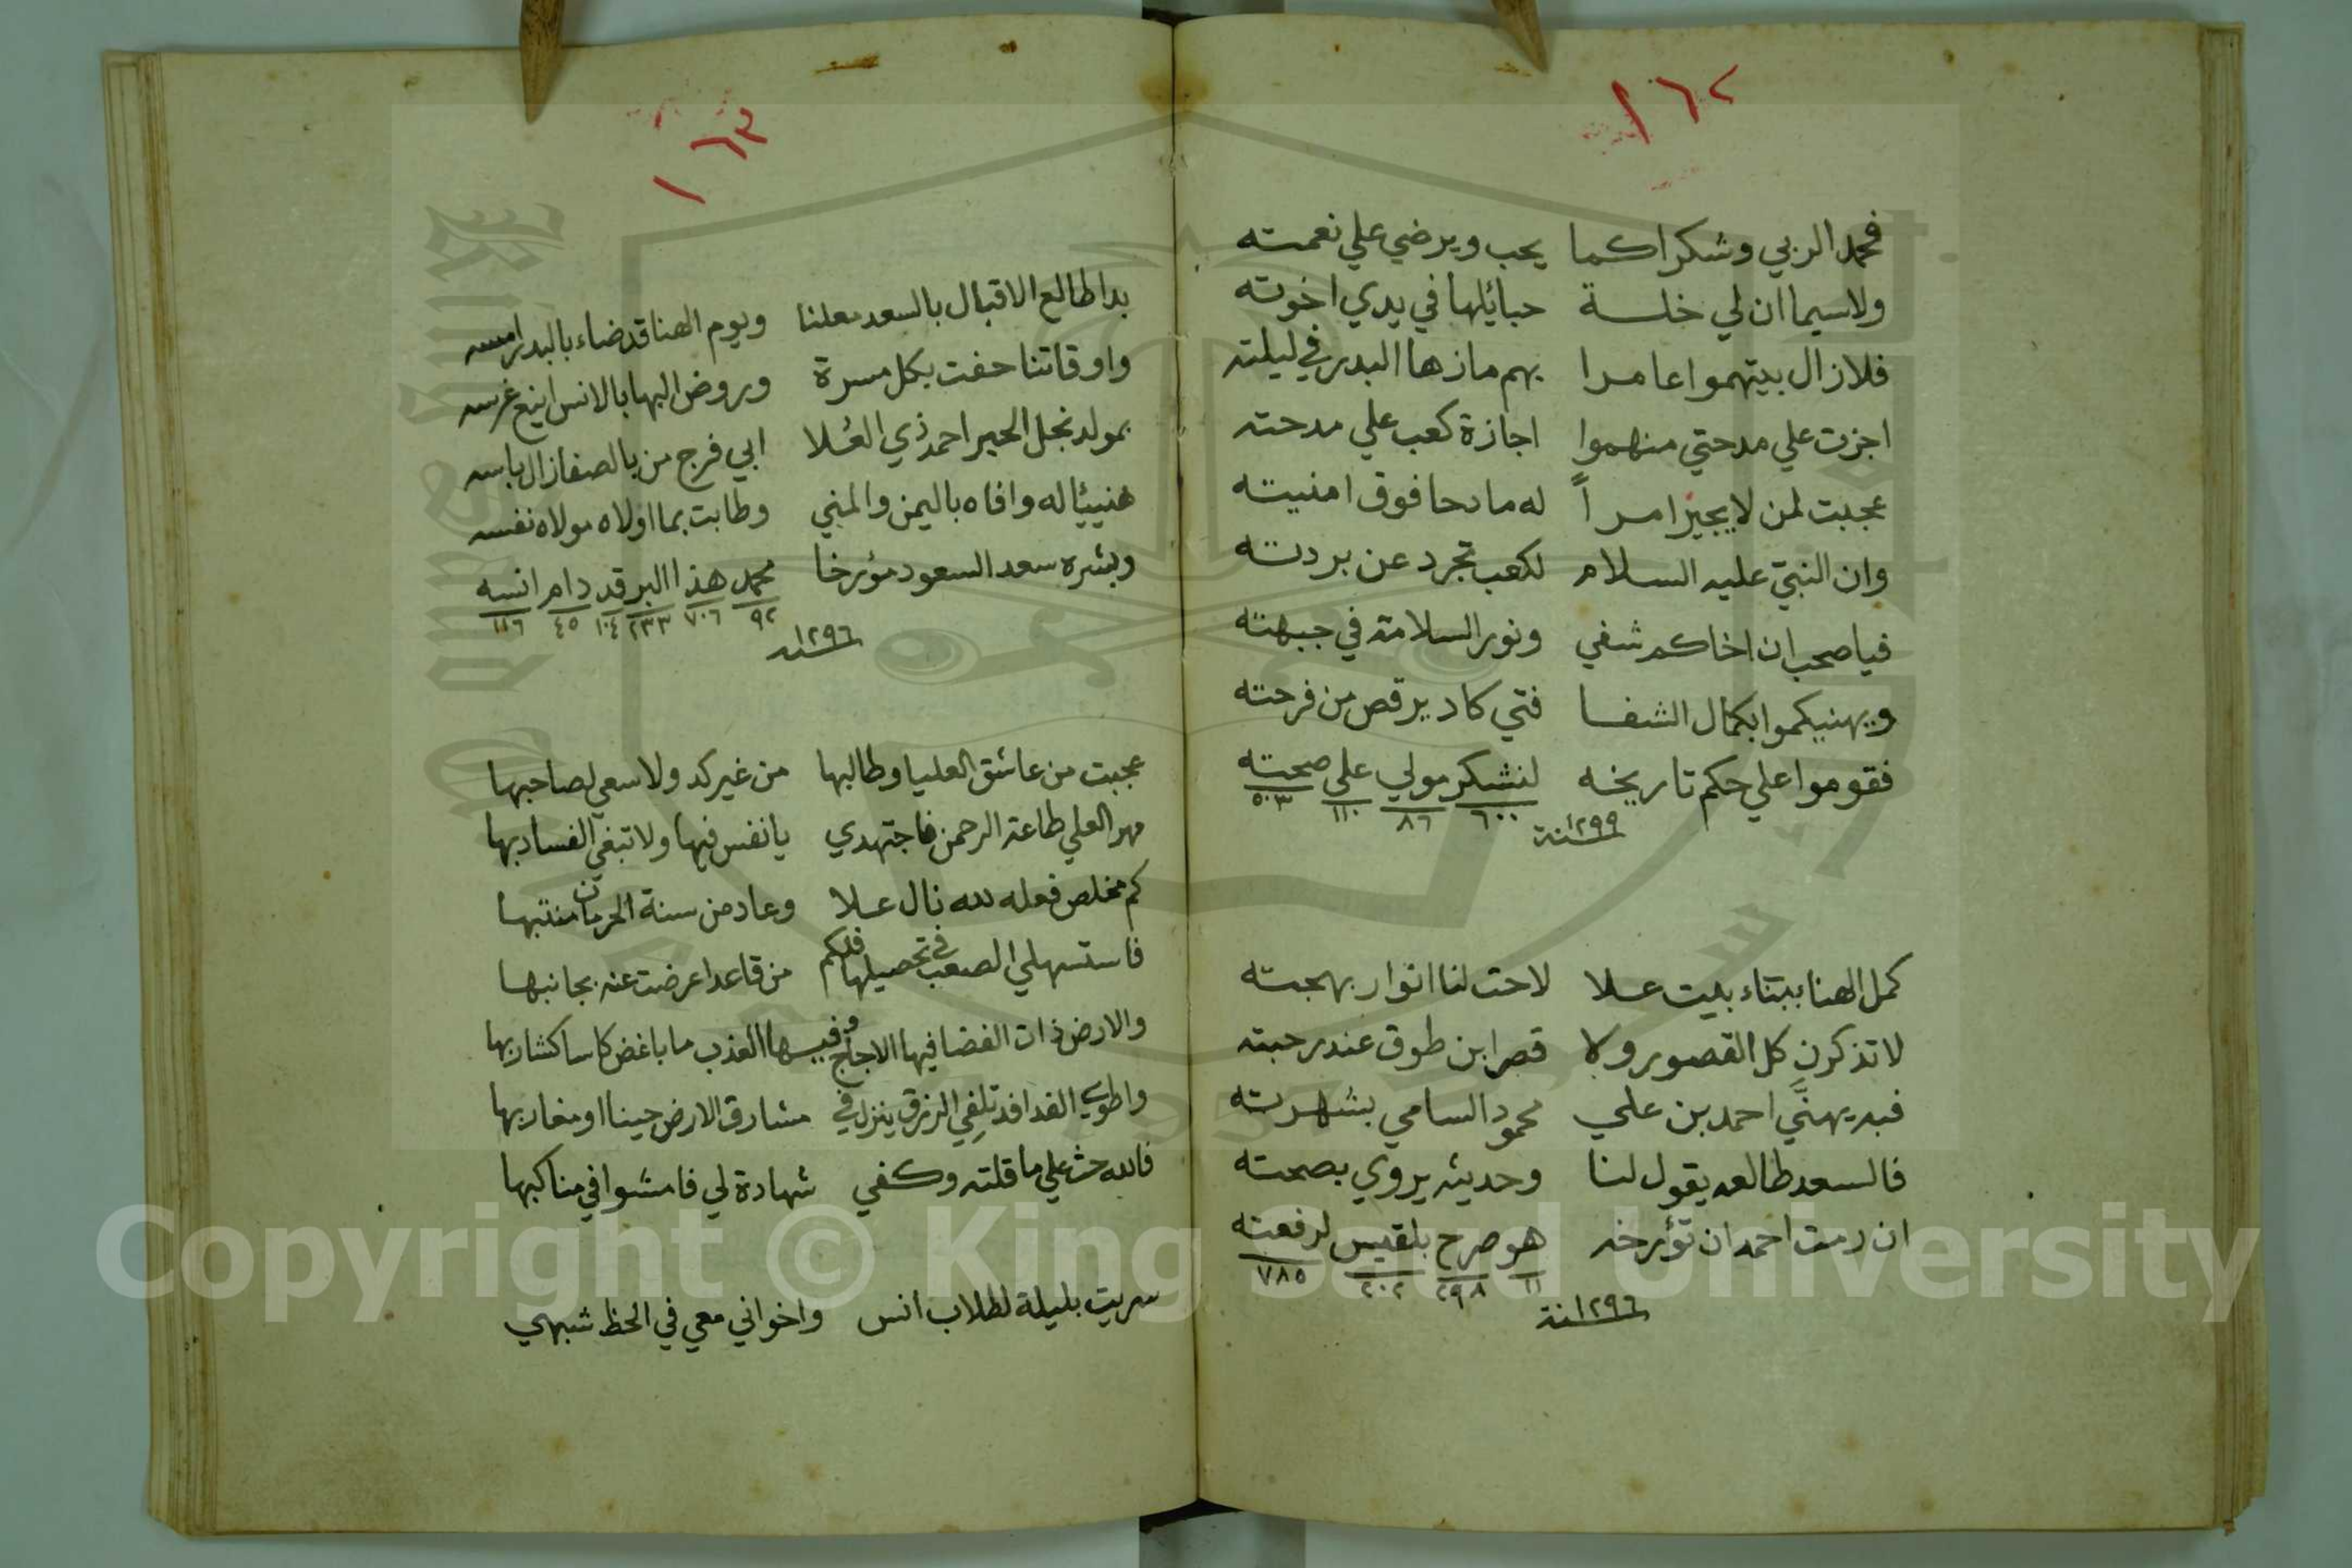 ١٦٢
فحمدا لربي وشكرا كما يحب ويرضي علي نعمته
ولاسيما ان لي خلسة حبائلها في يدي اخوته
فلازال بيتهموا عامرا بهم مازها البدر في ليلته
اجزت علي مدحتي منهموا اجازة كعب علي مدحته
عجبت لمن لا يجيز امرأً له مادحا فوق امنيته
وان النبيّ عليه السلام لكعب تجرد عن بردته
فيا صحب ان اخاكم شفي ونور السلامة في جبهته
ويهنيكموا بكمال الشفا فتي كاد يرقص من فرحته
فقوموا علي حكم تاريخه لنشكر مولي علي صحته
٦٠٠ ٨٦ ١١٠ ٥٠٣
سنة ١٢٩٩
كمل الهنا ببناء بيت علا لاحت لنا انوار بهجته
لا تذكرن كل القصور ولا قصر ابن طوق عند رحبته
فبه يهنَّي احمد بن علي محمود السامي بشهرته
فالسعد طالعه يقول لنا وحديثه يروي بصحته
ان رمت احمد ان تؤرخه هو صرح بلقيس لرفعته
١١ ٢٩٨ ٢٠٢ ٧٨٥
سنة ١٢٩٦
١٦٣
بدا طالع الاقبال بالسعد معلنا ويوم الهنا قد ضاء بالبدر امسه
واوقاتنا حفت بكل مسرة وروض البها بالانس اينع غرسه
بمولد نجل الحبر احمد ذي العُلا ابي فرج من بالصفا زال باسه
هنيئا له وافاه باليمن والمني وطابت بما اولاه مولاه نفسه
وبشره سعد السعود مؤرخا محمد هذا البر قد دام انسه
٩٢ ٧٠٦ ٢٣٣ ١٠٤ ٤٥ ١١٦
سنه ١٢٩٦
عجبت من عاشق العليا وطالبها من غير كد ولا سعي لصاحبها
مهر العلي طاعة الرحمن فاجتهدي يا نفس فيها ولا تبغي الفساد بها
كم مخلص فعله لله نال علا وعاد من سنة الحرمان منتبها
فاستسهلي الصعب في تحصيلها فلكم من قاعد اعرضت عنه بجانبها
والارض ذات الفضا فيها الاجاج وفيـها العذب ما باغض كاسا كشاربها
واطوي الفدافد تلفي الرزق ينزل في مشارق الارض حينا او مغاربها
فالله حث علي ما قلته وكفي شهادة لي فامشوا في مناكبها
سريت بليلة لطلاب انس واخواني معي في الحظ شبهي
Copyright © King Saud University